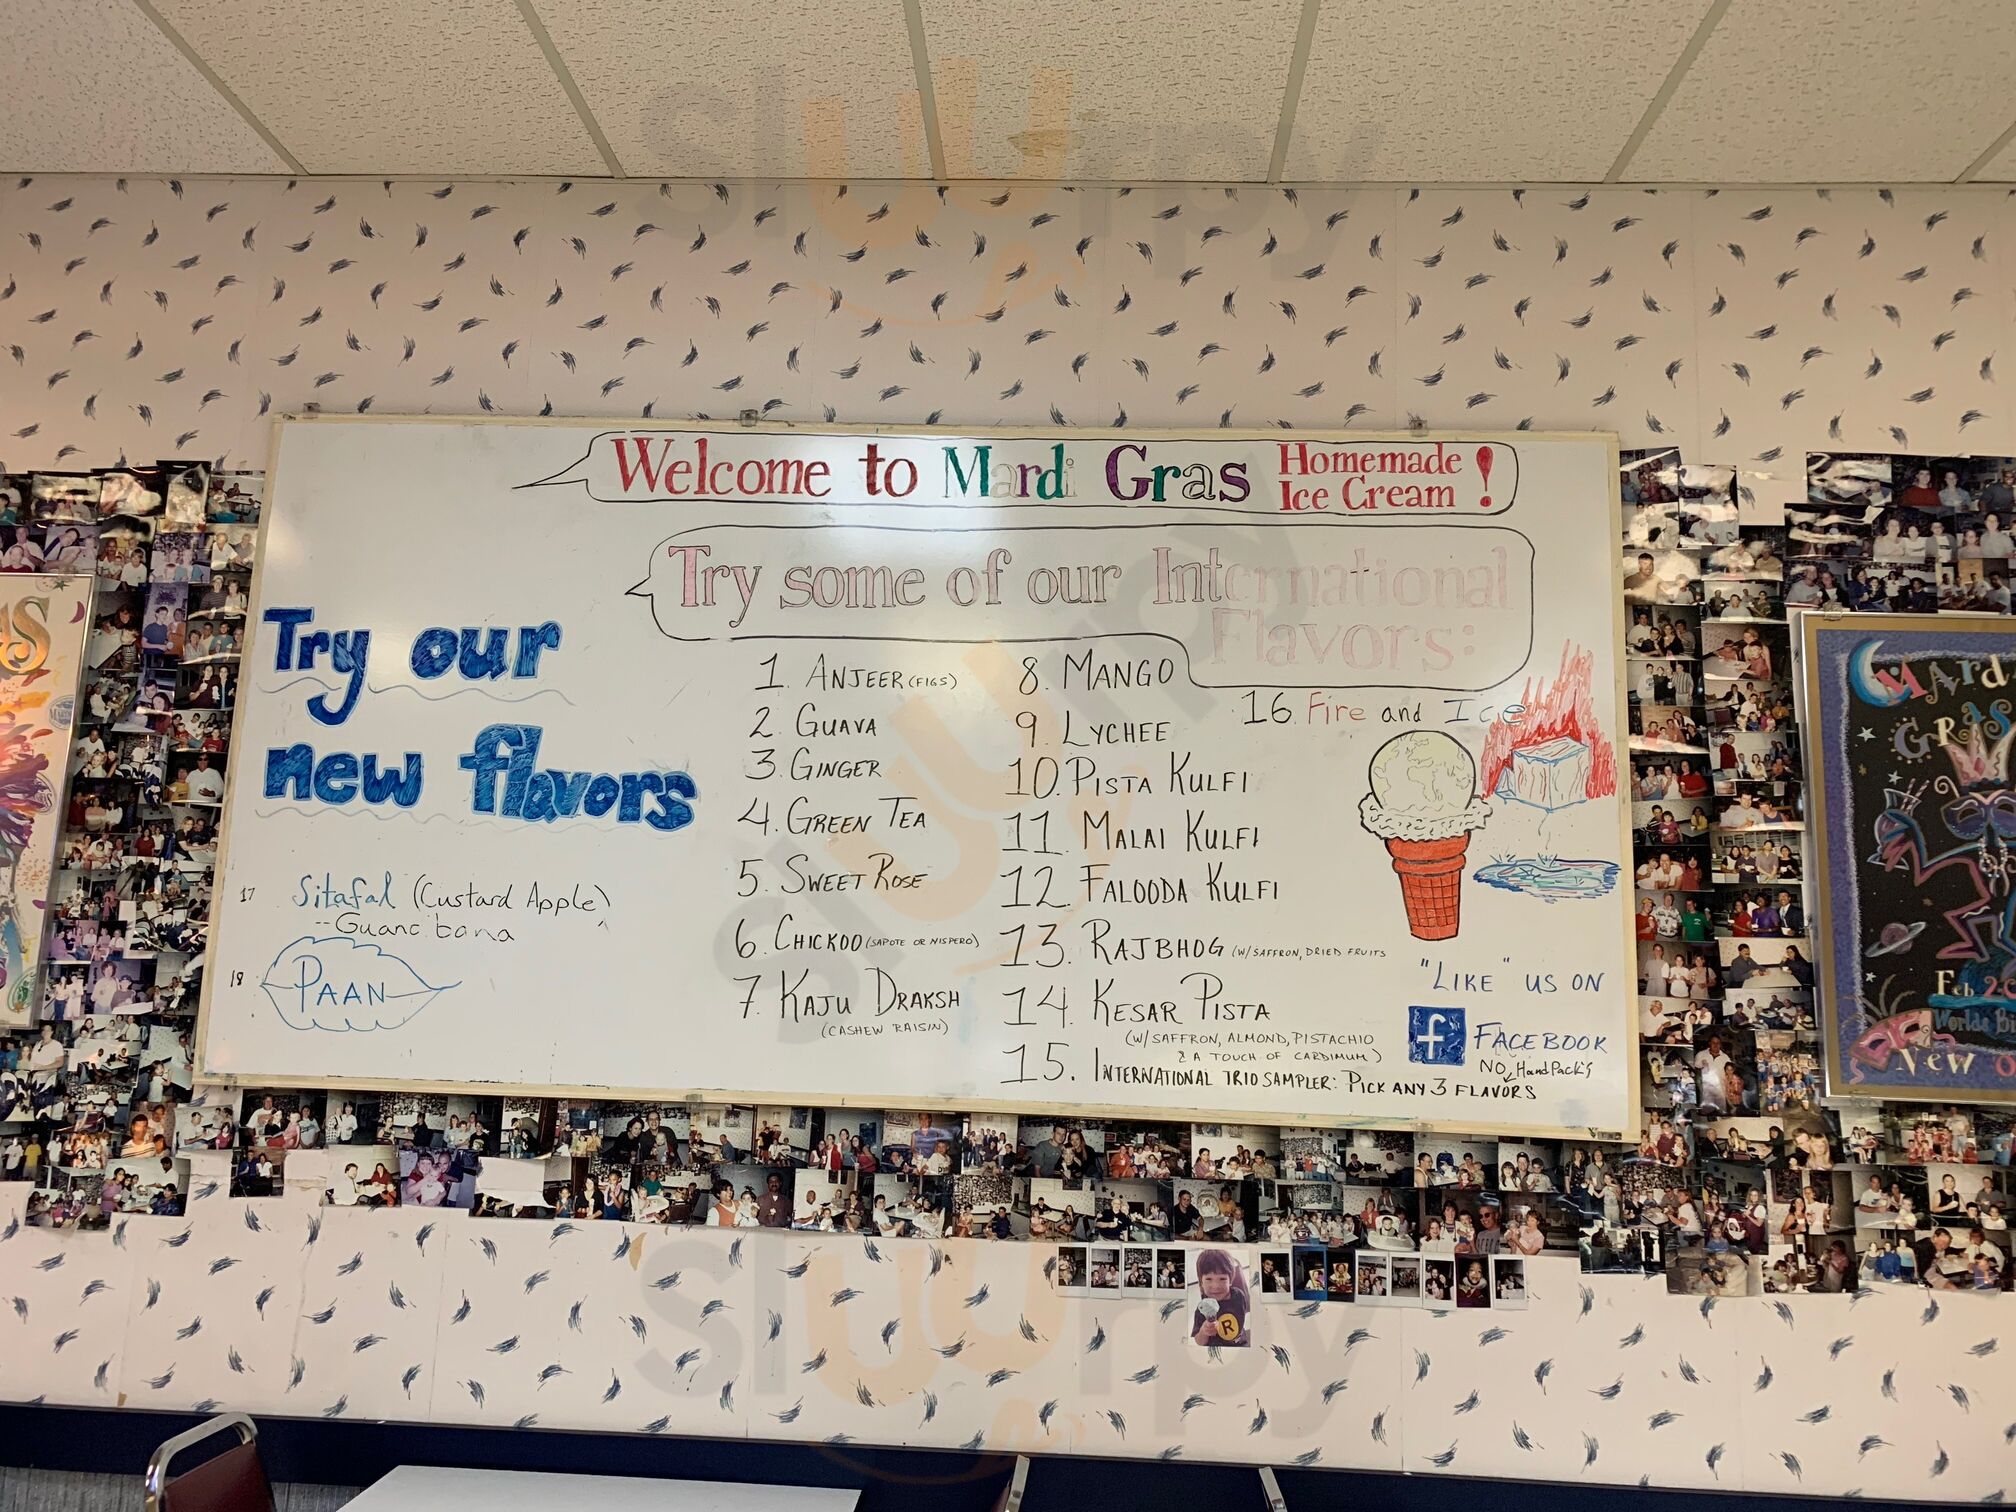 Welcome to Mardi Gras Homemade
Ice Cream !
Try some of our International
Flavors:
Try our
new flavors
17 Sitafal (Custard Apple)
--Guanabana
18 PAAN
1. ANJEER (FIGS)
2. GUAVA
3. GINGER
4. GREEN TEA
5. SWEET ROSE
6. CHICKOO (SAPOTE OR NISPERO)
7. KAJU DRAKSH
(CASHEW RAISIN)
8. MANGO
9. LYCHEE
10. PISTA KULFI
11. MALAI KULFI
12. FALOODA KULFI
13. RAJBHOG (W/SAFFRON, DRIED FRUITS
14. KESAR PISTA
(W/SAFFRON, ALMOND, PISTACHIO
& A TOUCH OF CARDIMUM)
15. INTERNATIONAL TRIO SAMPLER: PICK ANY 3 FLAVORS
NO HandPack's
16. Fire and Ice
"LIKE" US ON
f FACEBOOK
Mard
GRAS
Feb 2
Worlds
New
R
sluurpy
sluurpy
sluurpy